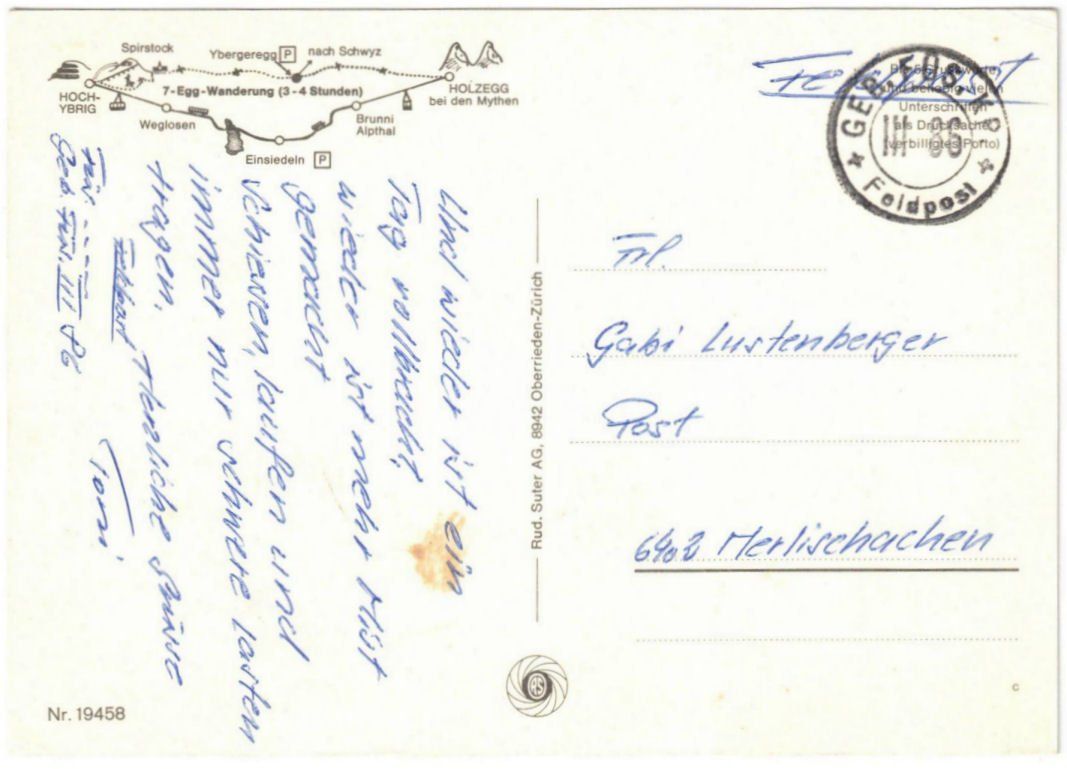 Spirstock
Ybergeregg P nach Schwyz
7-Egg-Wanderung (3-4 Stunden)
HOCH-
YBRIG
HOLZEGG
bei den Mythen
Weglosen
Brunni
Alpthal
Einsiedeln P
Und wieder ist ein
Tag vollbracht,
wieder ist mehr Mist
gemacht
Schiessen, laufen und
immer nur schwere Lasten
tragen.
Herzliche Grüsse
Toni
Füs.
Geb. Füs. III 86
Feldpost
Unterschriften
als Drucksache
(verbilligtes Porto)
GEB. FÜS. KP.
III 86
Feldpost
Frl.
Gabi Lustenberger
Post
6402 Merlischachen
Rud. Suter AG, 8942 Oberrieden-Zürich
RS
Nr. 19458
c